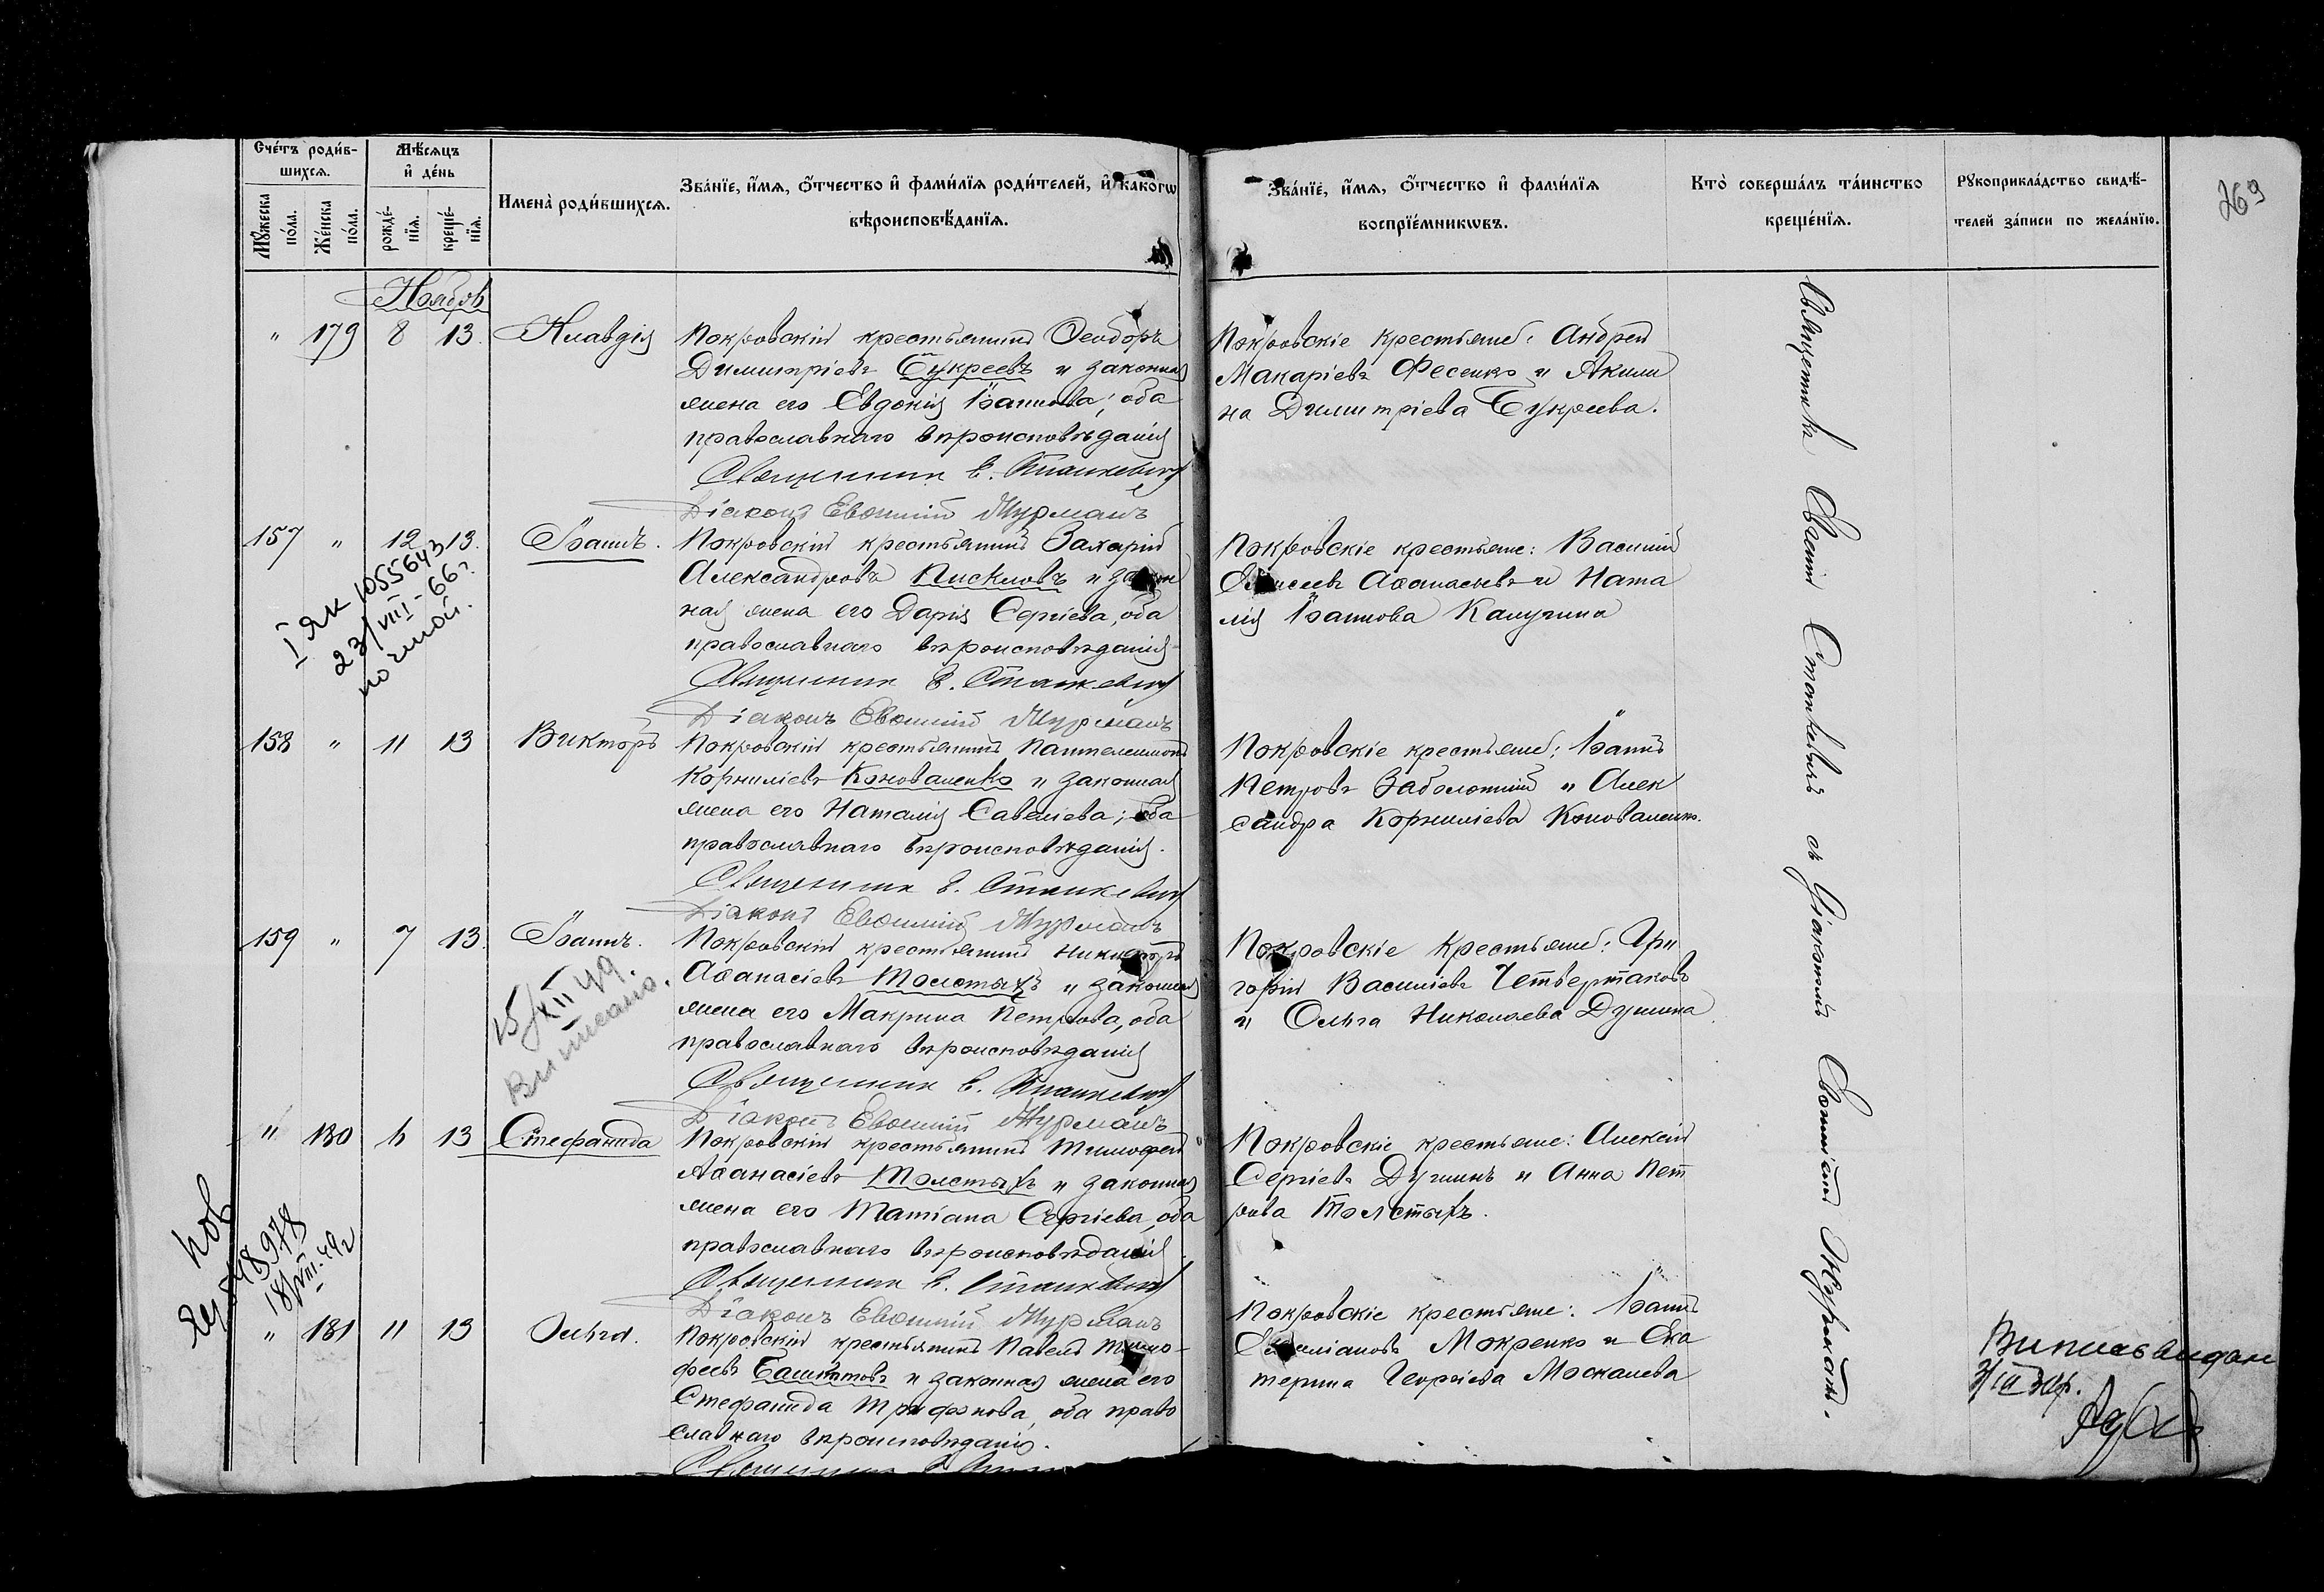 Счéтъ роди́в-
шихсѧ.
Мѣ́сѧцъ
и҆ де́нь
Имена̀ роди́вшихсѧ.
Зва́нїе, и҆́мѧ, ѻ҆́тчество и҆ фами́лїѧ роди́телей, и҆ какогѡ
вѣроисповѣ́данїѧ.
Мꙋ́жеска
по́ла.
Же́нска
по́ла.
рожде́-
нїѧ.
креще́-
нїѧ.
Зва́нїе, и҆́мѧ, ѻ҆́тчество и҆ фами́лїѧ
воспрїе́мникѡвъ.
Кто̀ соверша́лъ та́инство
креще́нїѧ.
Рꙋкоприкла́дство свидѣ́-
телей за́писи по жела́нїю.
269
Ноябрь
" 179 8 13. Клавдія
Покровскій крестьянинъ Ѳеодоръ
Димитріевъ Букреевъ и законная
жена его Евдокія Іоаннова; оба
православнаго вѣроисповѣданія
Священник Е. Станкевич
Діаконъ Евѳимій Журманъ
Покровскіе крестьяне: Андрей
Макаріевъ Фесенко и Акили
на Димитріева Букреева.
157 " 12 13. Іоаннъ.
Покровскій крестьянинъ Захарій
Александровъ Пискловъ и закон
ная жена его Дарія Сергіева, оба
православнаго вѣроисповѣданія
Священник Е. Станкевич
Діаконъ Евѳимій Журманъ
Покровскіе крестьяне: Василій
Аѳанасьевъ и Ната
лія Іоаннова Калугина
I ЯК 1055643
23/VIII-66 г.
158 " 11 13 Викторъ
Покровскій крестьянинъ Пантелеимонъ
Корниліевъ Коноваленко и законная
жена его Наталія Савеліева; оба
православнаго вѣроисповѣданія.
Священник Е. Станкевич
Діаконъ Евѳимій Журманъ
Покровскіе крестьяне: Іоаннъ
Петровъ Заболотній и Алек
сандра Корниліева Коноваленко.
159 " 7 13. Іоаннъ.
Покровскій крестьянинъ Никифоръ
Аѳанасіевъ Толстыхъ и законная
жена его Макрина Петрова, оба
православнаго вѣроисповѣданія
Священник Е. Станкевич
Діаконъ Евѳимій Журманъ
Покровскіе крестьяне: Гри
горій Василіевъ Четвертаковъ
и Ольга Николаева Душина.
15/XII 49.
Виписано.
" 180 6 13 Стефанида
Покровскій крестьянинъ Тимоѳей
Аѳанасіевъ Толстыхъ и законная
жена его Татіана Сергіева, оба
православнаго вѣроисповѣданія.
Священник Е. Станкевич
Діаконъ Евѳимій Журманъ
Покровскіе крестьяне: Алексій
Сергіевъ Душинъ и Анна Пет
рова Толстыхъ.
18/VIII-49 г
" 181 11 13 Ольга.
Покровскій крестьянинъ Павелъ Тимо-
феевъ Башкатовъ и законная жена его
Стефанида Трифонова, оба право
славнаго вѣроисповѣданія.
Покровскіе крестьяне: Іоаннъ
Мокренко и Ека
терина Георгіева Москалева
Священникъ Евгеній Станкевичъ съ діакономъ Евѳиміемъ Журманъ.